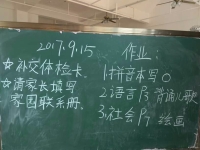 2017.9.15
☆补交体检卡。
☆请家长填写
家园联系册
作业：
1.拼音本写o
2.语言 背诵儿歌
3.社会 绘画